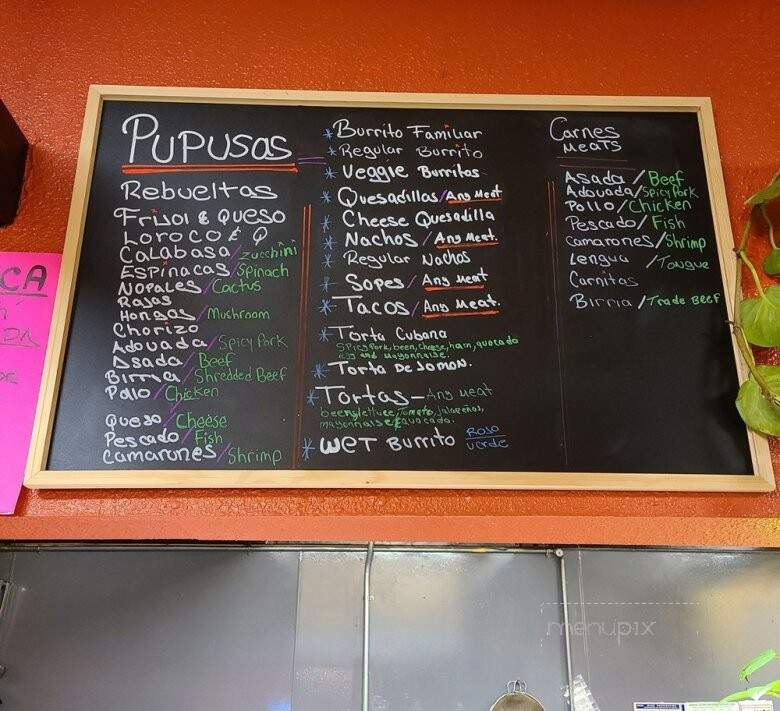 PUPUSAS
Rebueltas
Frijol & Queso
Loroco & Q
Calabasa / zucchini
Espinacas / Spinach
Nopales / Cactus
Rajas
Hongas / Mushroom
Chorizo
Adovada / Spicy Pork
Asada / Beef
Birria / Shredded Beef
Pollo / Chicken
Queso / Cheese
Pescado / Fish
Camarones / Shrimp
* Burrito Familiar
* Regular Burrito
* Veggie Burritos
* Quesadillas / Any Meat
* Cheese Quesadilla
* Nachos / Any Meat.
* Regular Nachos
* Sopes / Any Meat
* Tacos / Any Meat.
* Torta Cubana
Spicy Pork, been, cheese, ham, avocado
egg and mayonnaise.
* Torta De Jamon.
* Tortas - Any meat
beens, lettuce, tomato, jalapeños,
mayonnaise & avocado.
* WET Burrito Rojo
verde
Carnes
MEATS
Asada / Beef
Adovada / Spicy Pork
Pollo / Chicken
Pescado / Fish
Camarones / Shrimp
Lengua / Tongue
Carnitas
Birria / Trade Beef
CA
menupix